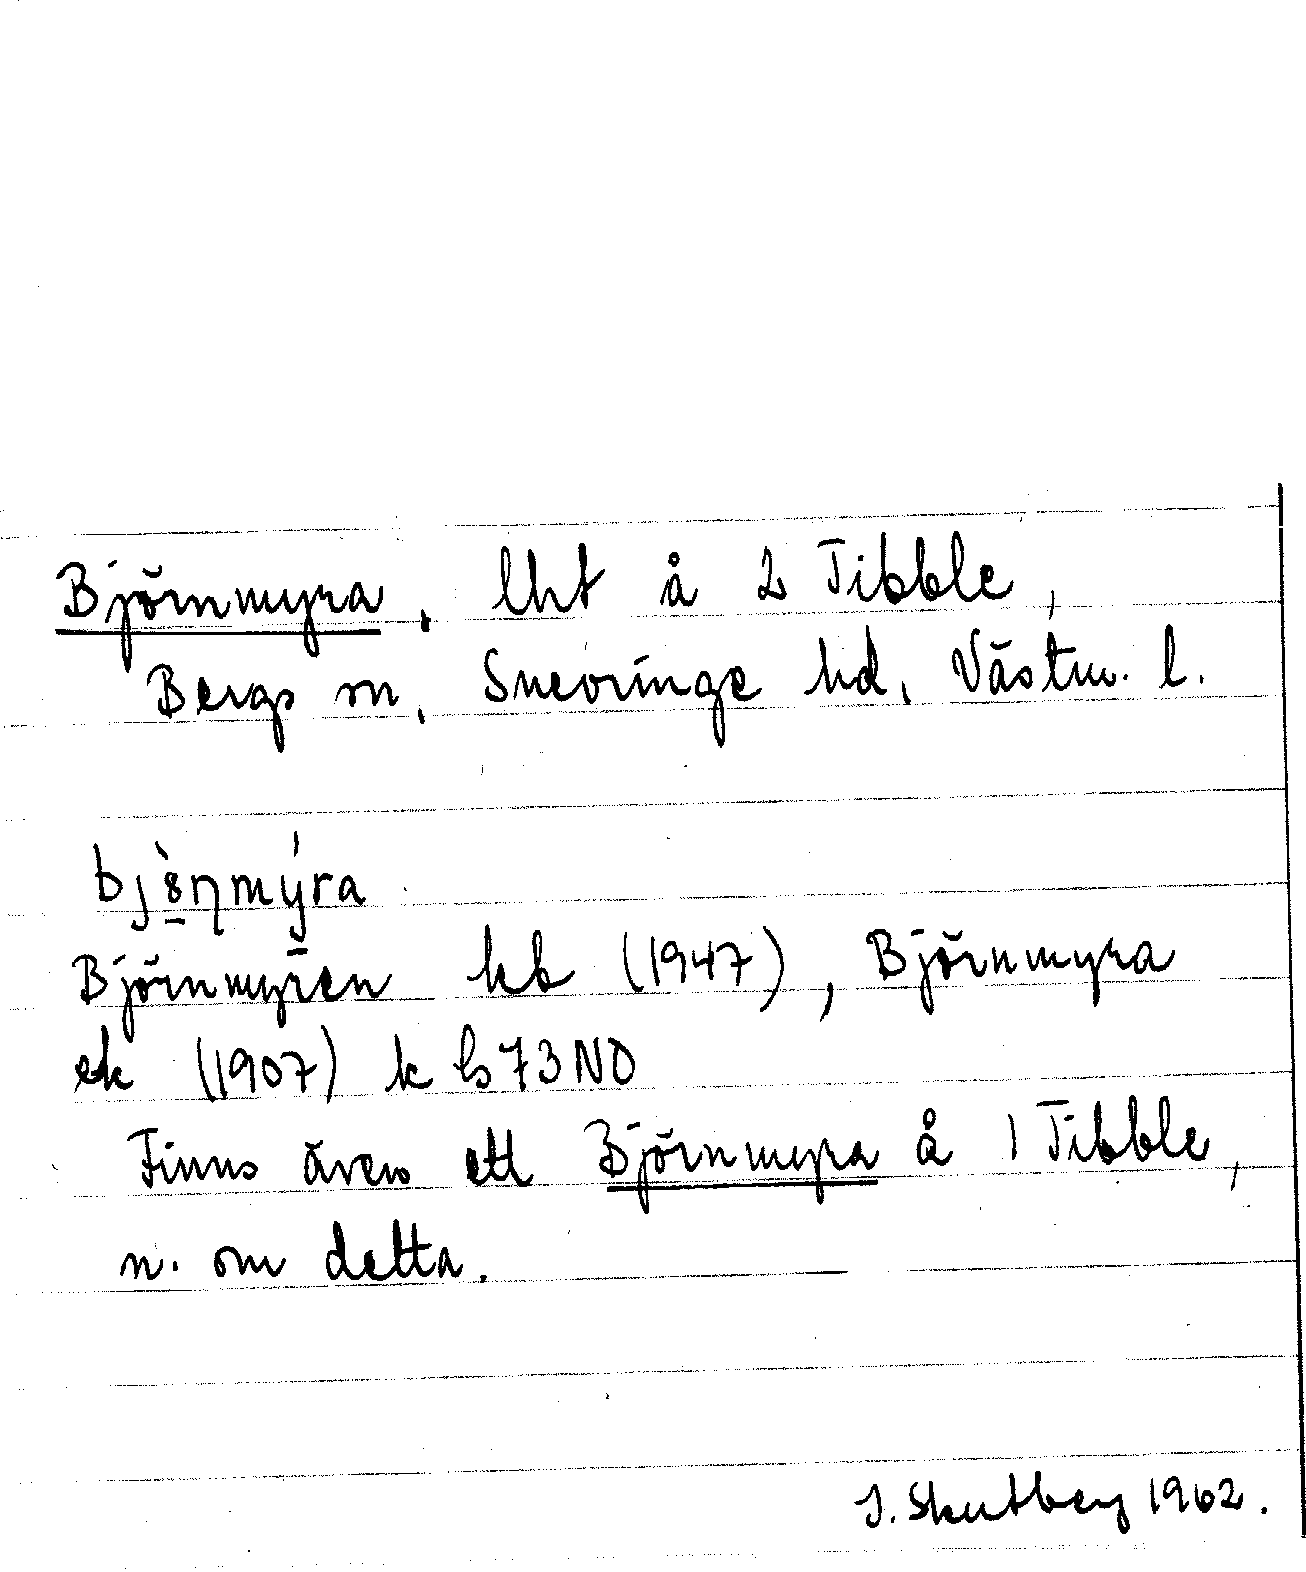 Björnmyra, lht å 2 Tibble,
Bergs sn, Snevringe hd, Västm. l.
bjö̀ṇmýra
Björnmyren hb (1947), Björnmyra
ek (1907) k b 73 NO
Finns även ett Björnmyra å 1 Tibble,
n. om detta.
J. Skutberg 1962.